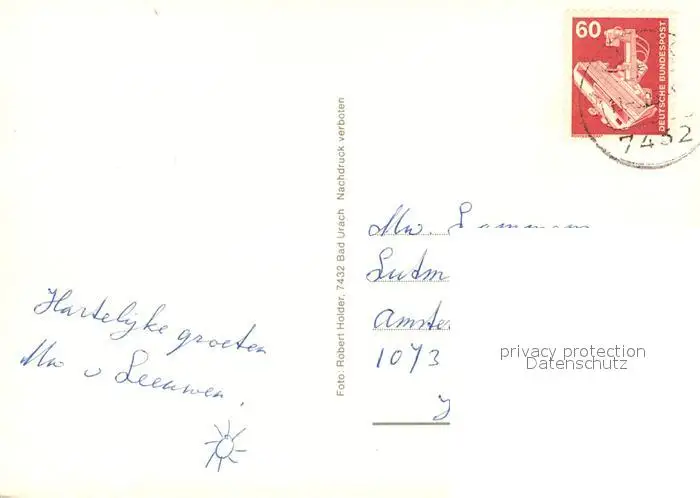 60
DEUTSCHE BUNDESPOST
7432
Foto: Robert Holder, 7432 Bad Urach Nachdruck verboten
Hartelijke groeten
Mw v Leeuwen.
Mw.
Amste
1073
privacy protection
Datenschutz